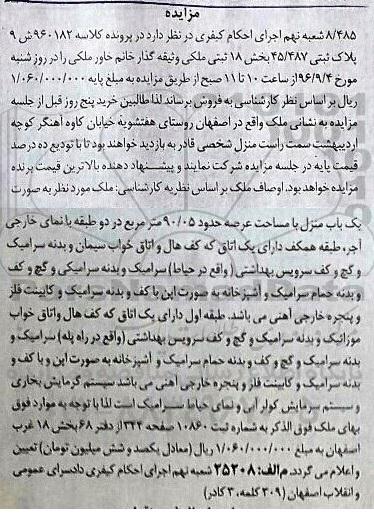 مزایده
۸/۴۸۵ شعبه نهم اجرای احکام کیفری در نظر دارد در پرونده کلاسه ۹۶۰۱۸۲ ش ۹
پلاک ثبتی ۴۵/۴۸۷ بخش ۱۸ ثبتی ملکی وثیقه گذار خانم خاور ملکی را در روز شنبه
مورخ ۹۶/۹/۴ از ساعت ۱۰ تا ۱۱ صبح از طریق مزایده به مبلغ پایه ۱/۰۶۰/۰۰۰/۰۰۰
ریال بر اساس نظر کارشناسی به فروش برساند لذا طالبین خرید پنج روز قبل از جلسه
مزایده به نشانی ملک واقع در اصفهان روستای هفتشویه خیابان کاوه آهنگر کوچه
اردیبهشت سمت راست منزل شخصی قادر به بازدید خواهند بود تا با تودیع ده درصد
قیمت پایه در جلسه مزایده شرکت نمایند و پیشنهاد دهنده بالاترین قیمت برنده
مزایده خواهد بود. اوصاف ملک بر اساس نظریه کارشناسی: ملک مورد نظر به صورت
یک باب منزل با مساحت عرصه حدود ۹۰/۰۵ متر مربع در دو طبقه با نمای خارجی
آجر، طبقه همکف دارای یک اتاق که کف هال و اتاق خواب سیمان و بدنه سرامیک
و گچ و کف سرویس بهداشتی (واقع در حیاط) سرامیک و بدنه سرامیکی و گچ و کف
و بدنه حمام سرامیک و آشپزخانه به صورت اپن با کف و بدنه سرامیک و کابینت فلز
و پنجره خارجی آهنی می باشد. طبقه اول دارای یک اتاق که کف هال و اتاق خواب
موزائیک و بدنه سرامیک و گچ و کف سرویس بهداشتی (واقع در راه پله) سرامیک و
بدنه سرامیک و گچ و کف و بدنه حمام سرامیک و آشپزخانه به صورت اپن و با کف و
بدنه سرامیک و کابینت فلز و پنجره خارجی آهنی می باشد سیستم گرمایش بخاری
و سیستم سرمایش کولر آبی و نمای حیاط سرامیک است لذا با توجه به موارد فوق
بهای ملک فوق الذکر به شماره ثبت ۱۰۸۶۰ صفحه ۳۴۲ از دفتر ۶۸ بخش ۱۸ غرب
اصفهان به مبلغ ۱/۰۶۰/۰۰۰/۰۰۰ ریال (معادل یکصد و شش میلیون تومان) تعیین
و اعلام می گردد. م الف: ۲۵۲۰۸ شعبه نهم اجرای احکام کیفری دادسرای عمومی
و انقلاب اصفهان (۳۰۹ کلمه، ۳ کادر)